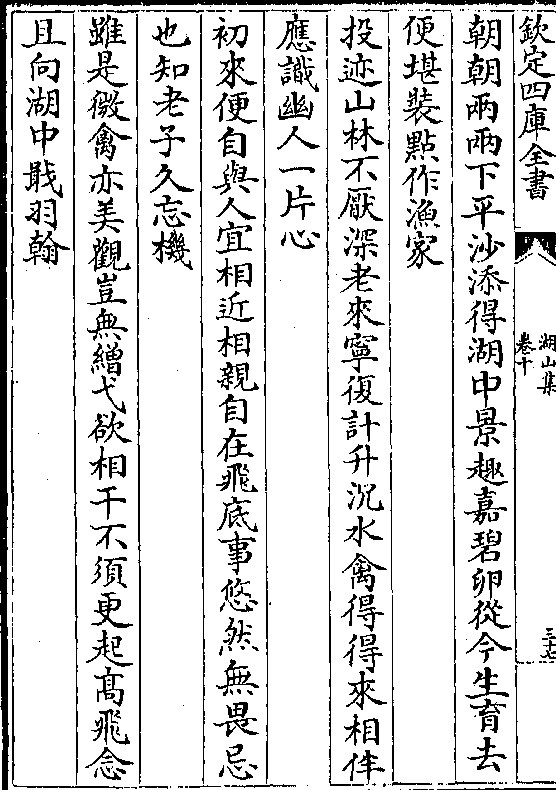 欽定四庫全書
湖山集
卷十
三十七
朝朝兩兩下平沙添得湖中景趣嘉碧卵從今生育去
便堪裝點作漁家
投迹山林不厭深老來寧復計升沉水禽得得來相伴
應識幽人一片心
初來便自與人宜相近相親自在飛底事悠然無畏忌
也知老子久忘機
雖是微禽亦美觀豈無繒弋欲相干不須更起高飛念
且向湖中戢羽翰